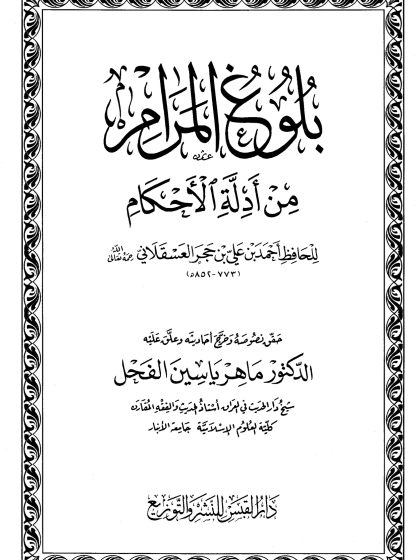 بُلُوغُ المَرَامِ
مِنْ أَدِلَّةِ الأَحْكَامِ
لِلْحَافِظِ أَحْمَدَ بْنِ عَلِيِّ بْنِ حَجَرٍ العَسْقَلَانِيِّ رحمه الله تعالى
(٧٧٣-٨٥٢هـ)
حَقَّقَ نُصُوصَهُ وَخَرَّجَ أَحَادِيثَهُ وَعَلَّقَ عَلَيْهِ
الدّكتور مَاهِر يَاسِين الفَحْل
شيخُ دَارِ الحَديثِ في العِراقِ أُستاذُ الحديثِ والفِقهِ المُقارَن
كليّة العُلومِ الإسْلاميّةِ جَامِعَة الأنبار
دَارُ القَبَسِ لِلنَّشْرِ وَالتَّوْزِيعِ